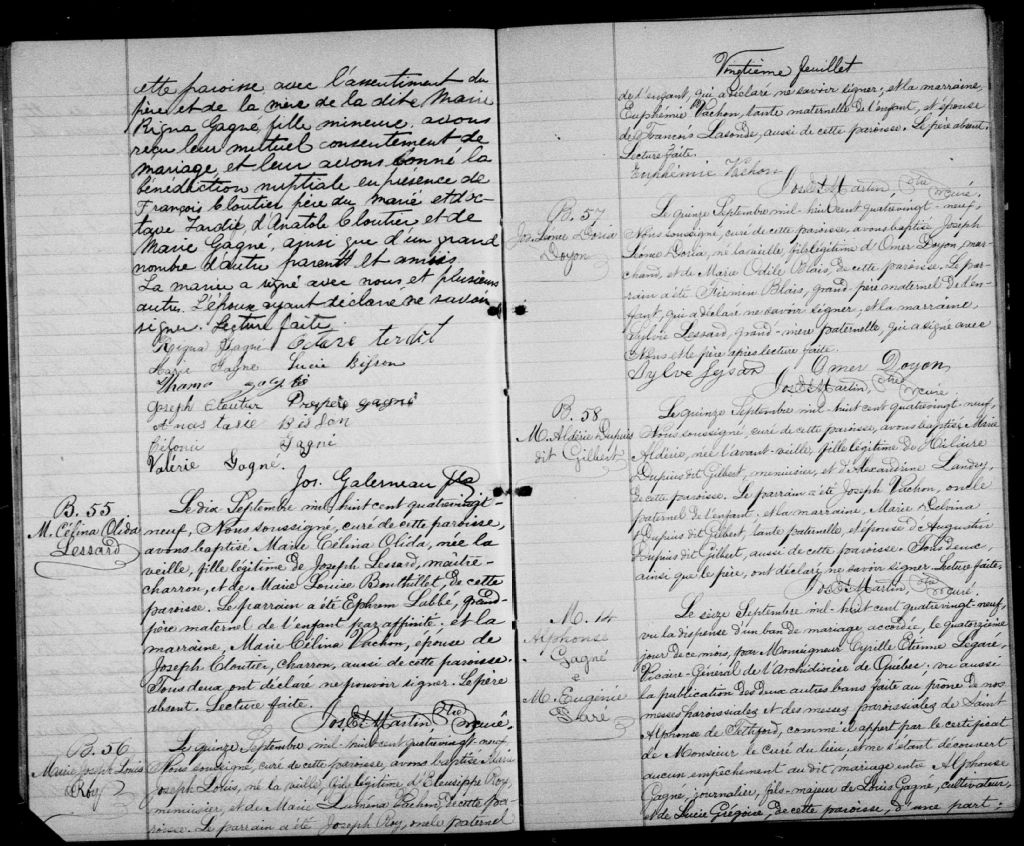 ette paroisse avec l'assentiment du
père et de la mère de la dite Marie
Régna Gagné fille mineure, avons
reçu leur mutuel consentement de
mariage, et leur avons donné la
bénédiction nuptiale en présence de
François Cloutier père du marié et d'Oc-
tave Tardif, d'Anatole Cloutier et de
Marie Gagné, ainsi que d'un grand
nombre d'autre parents et amis.
La mariée a signé avec nous et plusieurs
autres. L'époux ayant déclaré ne savoir
signer. Lecture faite.
Régna Gagné Octave terdif
Marie Gagné Lucie Bisson
Thama gagné
Joseph Cloutier Prospère gagné
Anastasie Bisson
Gagné
Valérie Gagné.
Jos. Galerneau
B. 55
M. Célina Olida
Lessard
Le dix Septembre mil huit cent quatrevingt-
neuf, Nous soussigné, curé de cette paroisse,
avons baptisé Marie Célina Olida, née la
veille, fille légitime de Joseph Lessard, maître-
charron, et de Marie Louise Bonthillet, de cette
paroisse. Le parrain a été Ephrem Labbé, grand-
père maternel de l'enfant par affinité; et la
marraine, Marie Célina Vachon, épouse de
Joseph Cloutier, charron, aussi de cette paroisse.
Tous deux ont déclaré ne pouvoir signer. Le père
absent. Lecture faite.
Jos. Et. Martin, Ptre curé.
B. 56
Marie Joseph Louis
Roy
Le quinze Septembre mil huit cent quatrevingt-neuf,
Nous soussigné, curé de cette paroisse, avons baptisé Marie
Joseph Louis, né la veille, fils légitime d'Eleusippe Roy,
menuisier, et de Marie Lumena Vachon, de cette pa-
roisse. Le parrain a été Joseph Roy, oncle paternel
Vingtième feuillet
de l'enfant, qui a déclaré ne savoir signer; et la marraine,
Euphémie Vachon, tante maternelle de l'enfant, et épouse
de François Lasonde, aussi de cette paroisse. Le père absent.
Lecture faite.
Euphémie Vachon
Jos. Et. Martin, Ptre curé.
B. 57
Jos. Léonce Doria
Doyon
Le quinze Septembre mil-huit cent quatrevingt-neuf,
Nous soussigné, curé de cette paroisse, avons baptisé Joseph
Léonce Doria, né la veille, fils légitime d'Omer Doyon, mar-
chand, et de Marie Odile Blais, de cette paroisse. Le par-
rain a été Firmin Blais, grand-père maternel de l'en-
fant, qui a déclaré ne savoir signer; et la marraine
Sylvie Lessard, grand-mère paternelle, qui a signé avec
Nous et le père après lecture faite.
Sylvé Lesard Omer Doyon
Jos. Et. Martin, Ptre curé.
B. 58
M. Aldérie Dupuis
dit Gilbert
Le quinze Septembre mil-huit cent quatrevingt-neuf,
Nous soussigné, curé de cette paroisse, avons baptisé Marie
Aldérie, née l'avant-veille, fille légitime de Hilaire
Dupuis dit Gilbert, menuisier, et d'Alexandrine Landry,
de cette paroisse. Le parrain a été Joseph Vachon, oncle
paternel de l'enfant; et la marraine, Marie Delvina
Dupuis dit Gilbert, tante paternelle et épouse d'Augustin
Dupuis dit Gilbert, aussi de cette paroisse. Tous deux,
ainsi que le père, ont déclaré ne savoir signer. Lecture faite.
Jos. Et. Martin, Ptre curé.
M. 14
Alphonse
Gagné
&
M. Eugénie
Paré
Le seize Septembre mil-huit cent quatrevingt-neuf,
vu la dispense d'un ban de mariage accordée, le quatorzième
jour de ce mois, par Monseigneur Cyrille Étienne Légaré,
Vicaire-Général de l'Archidiocèse de Québec; vu aussi
la publication des deux autres bans faite au prône de nos
messes paroissiales et des messes paroissiales de Saint
Alphonse de Tetford, comme il appert par le certificat
de Monsieur le curé du lieu, et ne s'étant découvert
aucun empêchement au dit mariage entre Alphonse
Gagné, journalier, fils-majeur de Louis Gagné, cultivateur,
et de Lucie Grégoire, de cette paroisse, d'une part;